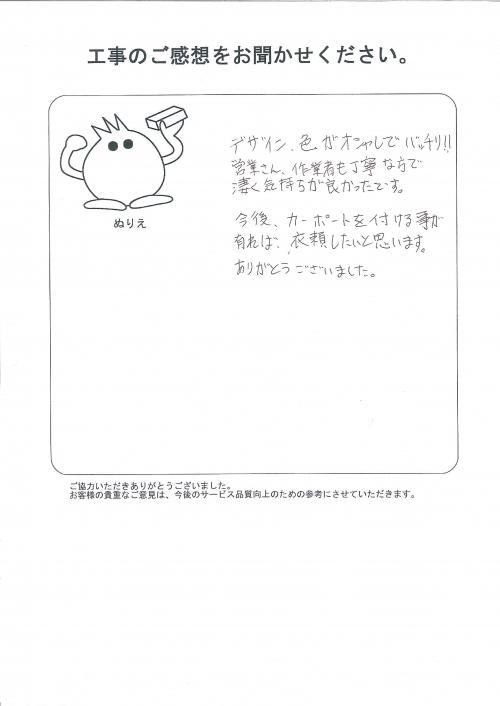 工事のご感想をお聞かせください。
ぬりえ
デザイン、色がオシャレでバッチリ!!
営業さん、作業者も丁寧な方で
凄く気持ちが良かったです。
今後、カーポートを付ける事が
有れば、衣頼したいと思います。
ありがとうございました。
ご協力いただきありがとうございました。
お客様の貴重なご意見は、今後のサービス品質向上のための参考にさせていただきます。